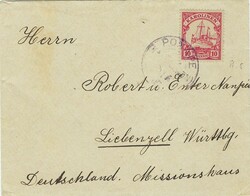 KAROLINEN
10 10
Herrn
Robert u. Enter Nanpei
Liebenzell Württbg.
Deutschland. Missionshaus